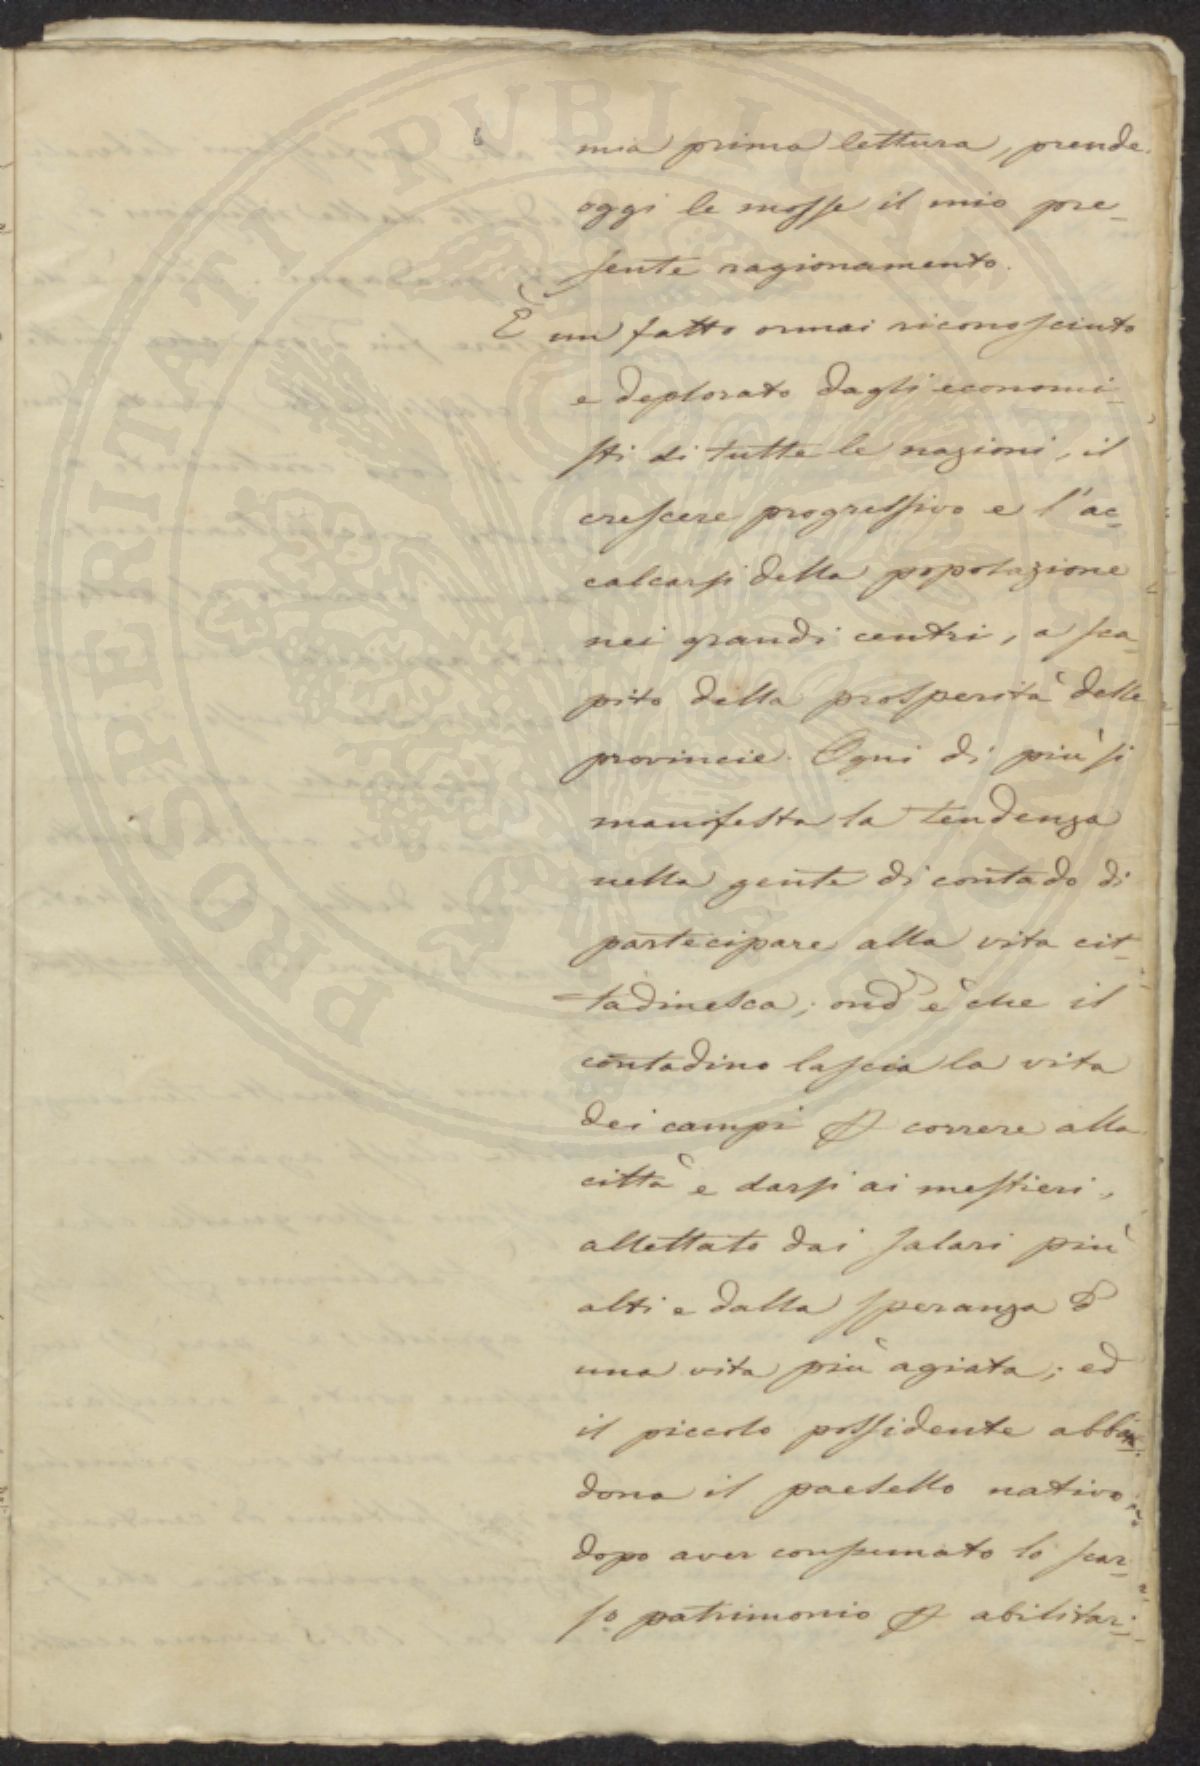 6
mia prima lettura, prende
oggi le mosse il mio pre-
sente ragionamento.
È un fatto ormai riconosciuto
e deplorato dagli economi-
sti di tutte le nazioni, il
crescere progressivo e l'ac-
calcarsi della popolazione
nei grandi centri, a sca-
pito della prosperità delle
provincie. Ogni dì più si
manifesta la tendenza
nella gente di contado di
partecipare alla vita cit-
tadinesca; ond'è che il
contadino lascia la vita
dei campi p correre alla
città e darsi ai mestieri,
allettato dai salari più
alti e dalla speranza d'
una vita più agiata; ed
il piccolo possidente abban-
dona il paesello nativo,
dopo aver consumato lo scar-
so patrimonio p abilitar-
PROSPERITATI PVBLICAE